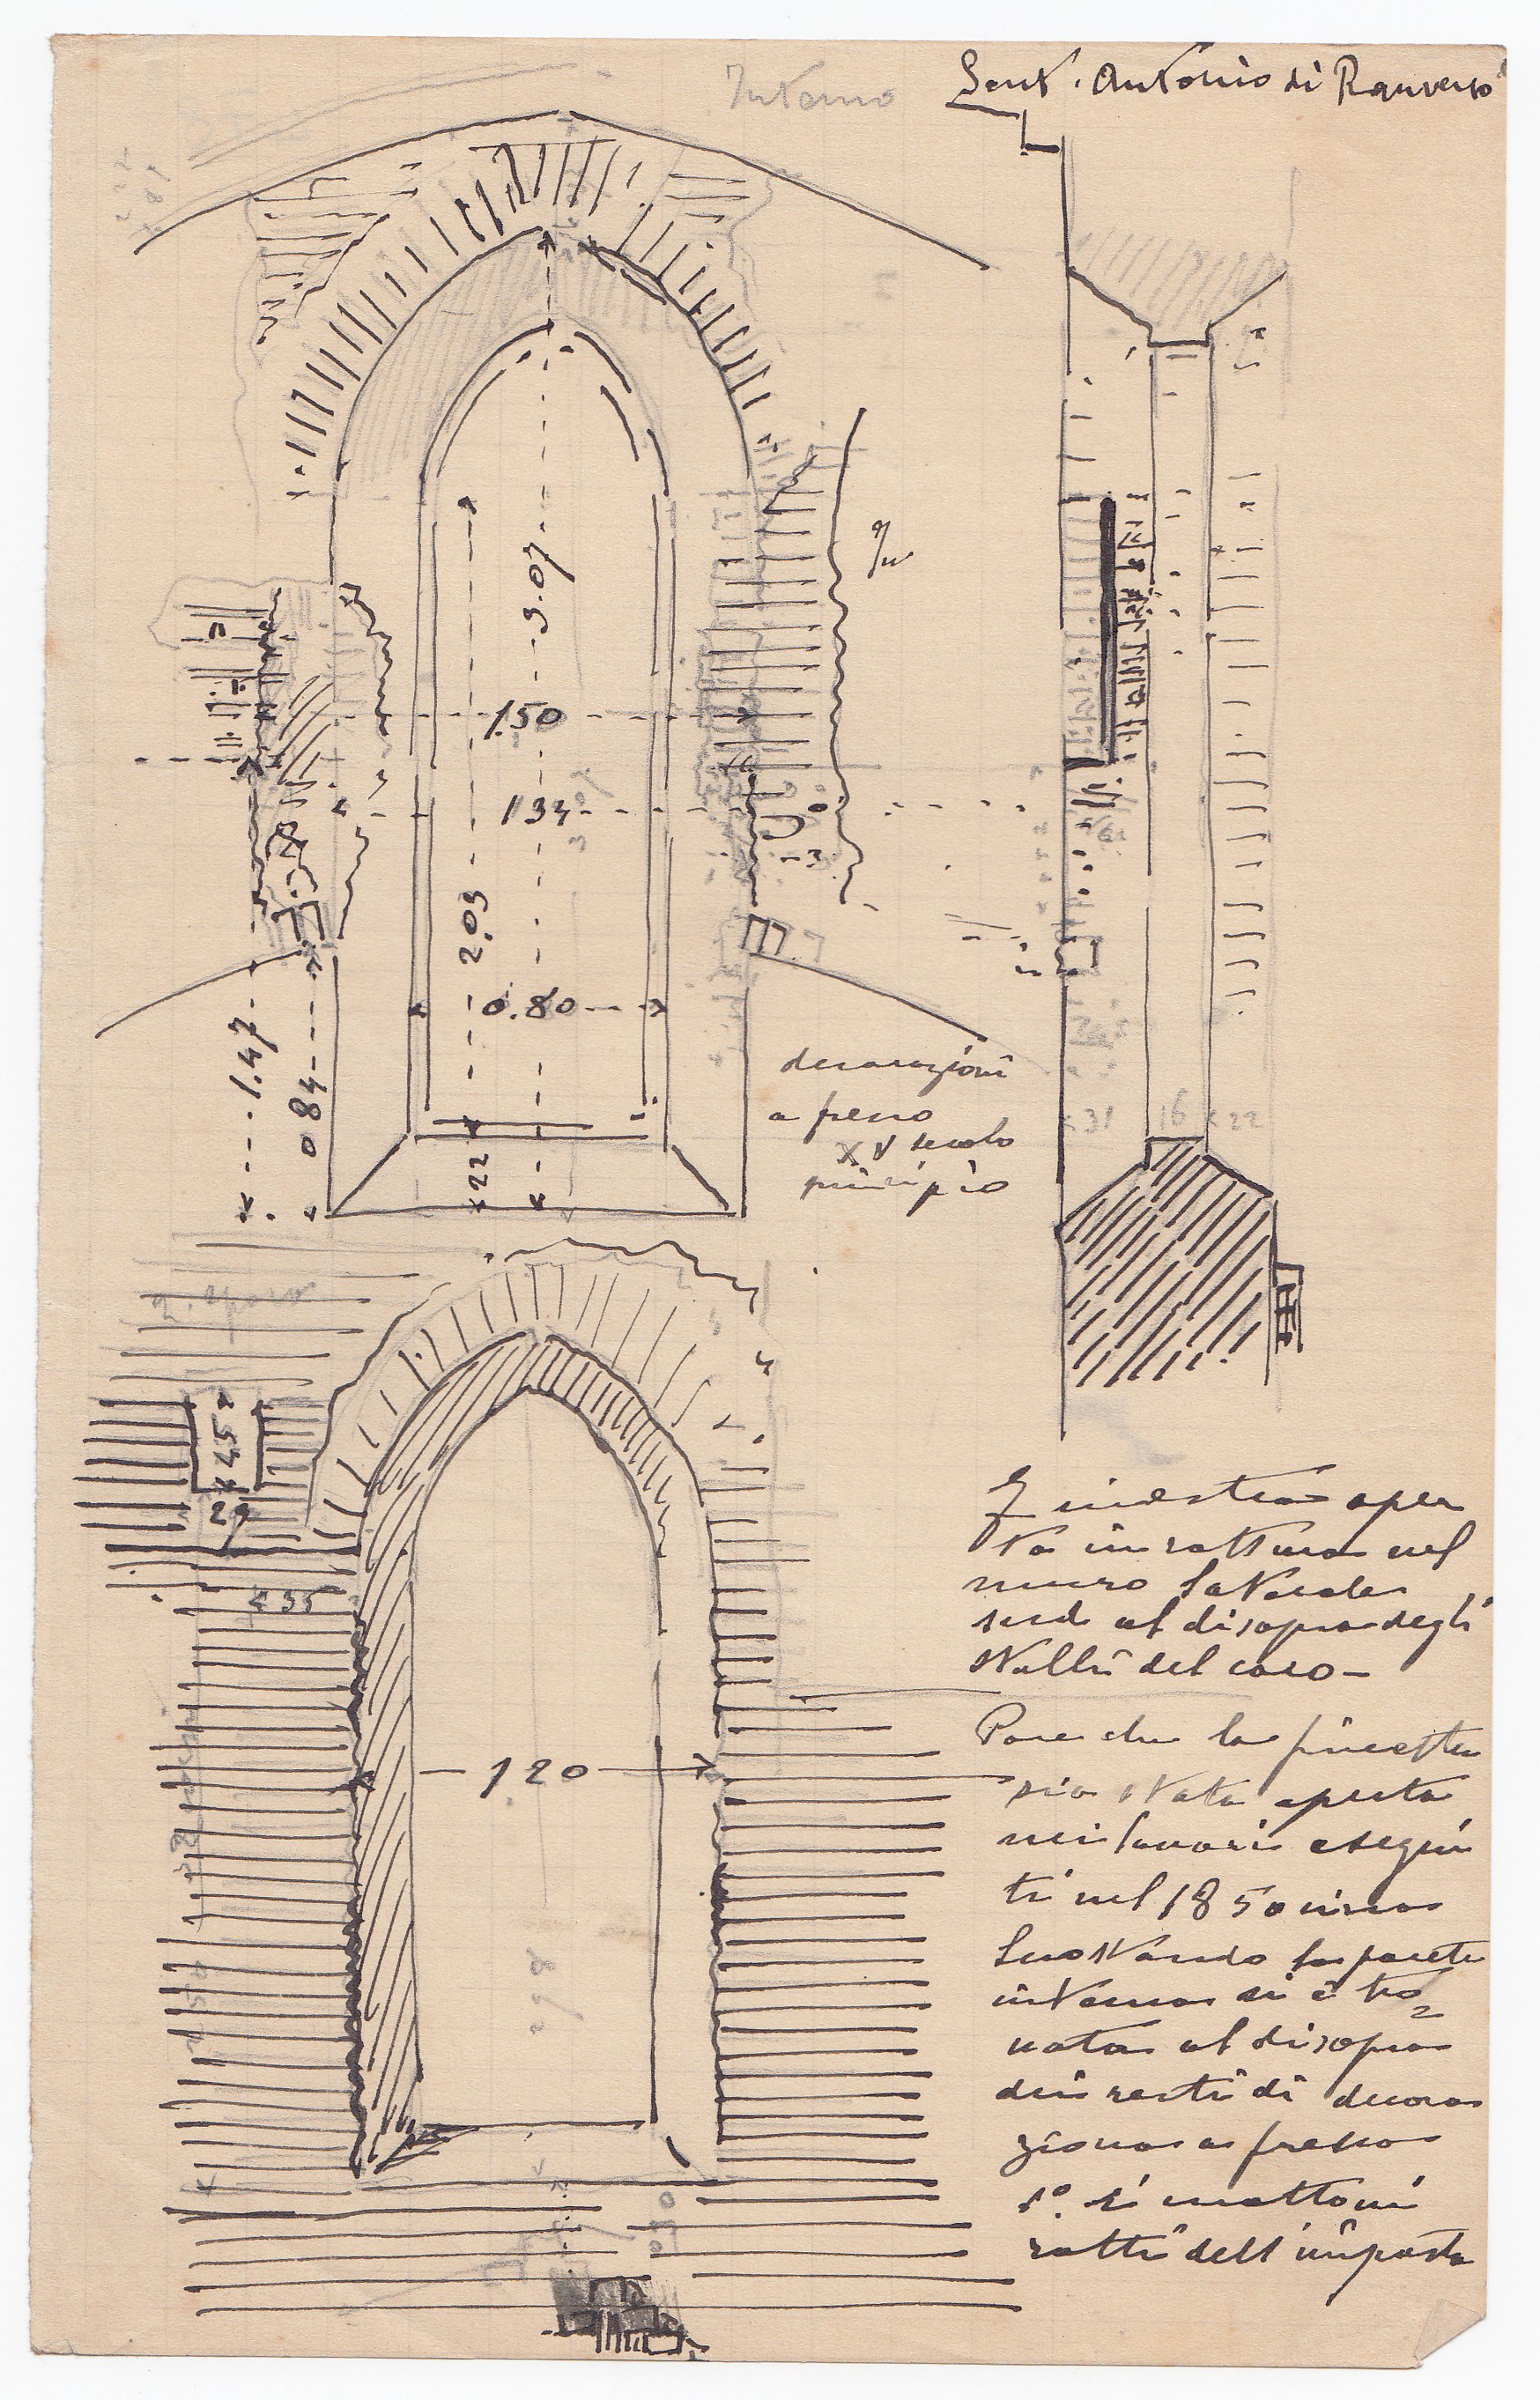 Interno
Sant. Antonio di Ranverso
3.07
1.50
1 34
2.03
0.80
1.47
0 84
22
decorazioni
a fresco
XV secolo
principio
31 16 22
45
29
35
Finestra aper
ta in rottura nel
muro laterale
sud al disopra degli
stalli del coro -
Pare che la finestra
sia stata aperta
nei lavori esegui
ti nel 1850 circa
Scrostando la parete
interna si è tro
vata al disopra
dei resti di decora
ziona a fresco
1º. Si mattoni
rotti dell'imposta
1.20
298